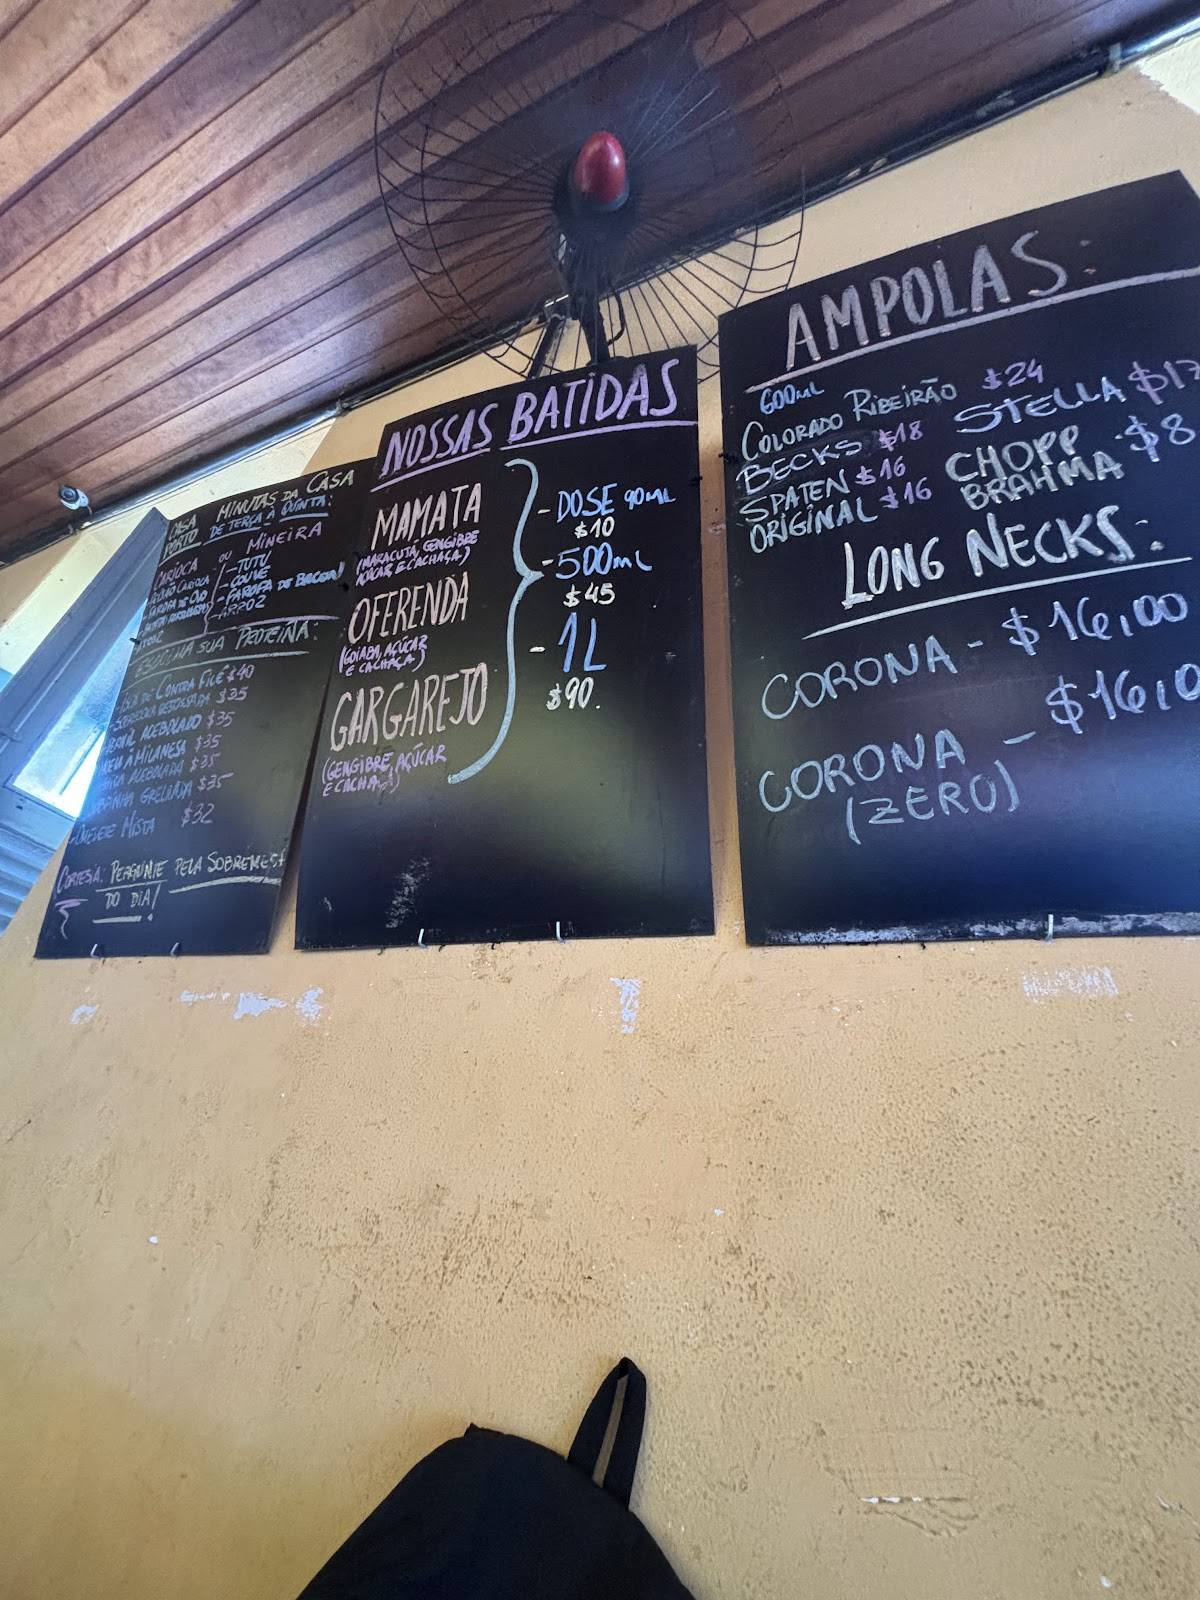 CASA PORTO
MINUTAS DA CASA
DE TERÇA À QUINTA:
CARIOCA OU MINEIRA
FEIJÃO CARIOCA
FAROFA DE OVO
ARROZ
-TUTU
-COUVE
-FAROFA DE BACON
-ARROZ
ESCOLHA SUA PROTEÍNA:
DE CONTRA FILÉ $40
$35
ACEBOLADO $35
À MILANESA $35
ACEBOLADA $35
GRELHADA $35
-OMELETE MISTA $32
CORTESIA: PERGUNTE PELA SOBREMESA
DO DIA!
NOSSAS BATIDAS
MAMATA
(MARACUJÁ, GENGIBRE
AÇÚCAR E CACHAÇA)
OFERENDA
(GOIABA, AÇÚCAR
E CACHAÇA)
GARGAREJO
(GENGIBRE, AÇÚCAR
E CACHAÇA)
-DOSE 90ML
$10
-500ML
$45
-1L
$90.
AMPOLAS:
600ML
COLORADO RIBEIRÃO $24
BECKS $18
SPATEN $16
ORIGINAL $16
STELLA $17
CHOPP
BRAHMA $8
LONG NECKS:
CORONA - $16,00
CORONA - $16,0
(ZERO)